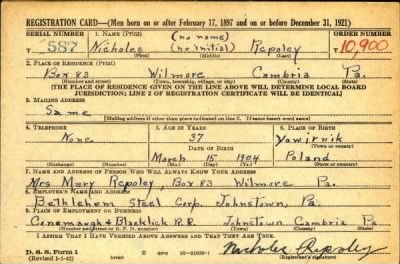 REGISTRATION CARD—(Men born on or after February 17, 1897 and on or before December 31, 1921)
SERIAL NUMBER 1. NAME (Print) (no name) ORDER NUMBER
587 Nicholes (no initial) Repoley 10,900
(First) (Middle) (Last)
2. PLACE OF RESIDENCE (Print)
Box 83 Wilmore Cambria Pa.
(Number and street) (Town, township, village, or city) (County) (State)
[THE PLACE OF RESIDENCE GIVEN ON THE LINE ABOVE WILL DETERMINE LOCAL BOARD
JURISDICTION; LINE 2 OF REGISTRATION CERTIFICATE WILL BE IDENTICAL]
3. MAILING ADDRESS
Same
[Mailing address if other than place indicated on line 2. If same insert word same]
4. TELEPHONE 5. AGE IN YEARS 6. PLACE OF BIRTH
None 37 Yowirnik
DATE OF BIRTH (Town or county)
March 15 1904 Poland
(Exchange) (Number) (Mo.) (Day) (Yr.) (State or country)
7. NAME AND ADDRESS OF PERSON WHO WILL ALWAYS KNOW YOUR ADDRESS
Mrs Mary Repoley, Box 83 Wilmore Pa.
8. EMPLOYER'S NAME AND ADDRESS
Bethlehem Steel Corp. Johnstown, Pa.
9. PLACE OF EMPLOYMENT OR BUSINESS
Conemaugh & Blacklick R.R. Johnstown Cambria Pa.
(Number and street or R. F. D. number) (Town) (County) (State)
I AFFIRM THAT I HAVE VERIFIED ABOVE ANSWERS AND THAT THEY ARE TRUE.
D. S. S. Form 1
(Revised 1-1-42) (over) GPO Nicholes Repoley
(Registrant's signature)